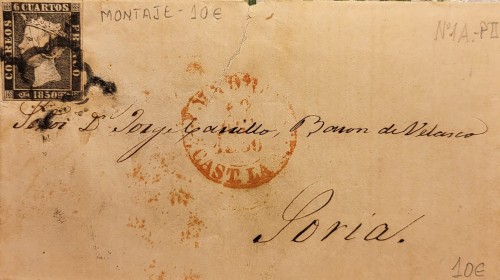 MONTAJE - 10€
Nº1A.-PII
6 CUARTOS
CORREOS
FRANCO
1850
CAST. LA
Señor D. Jorge Carrillo, Baron de Velasco
Soria.
10€